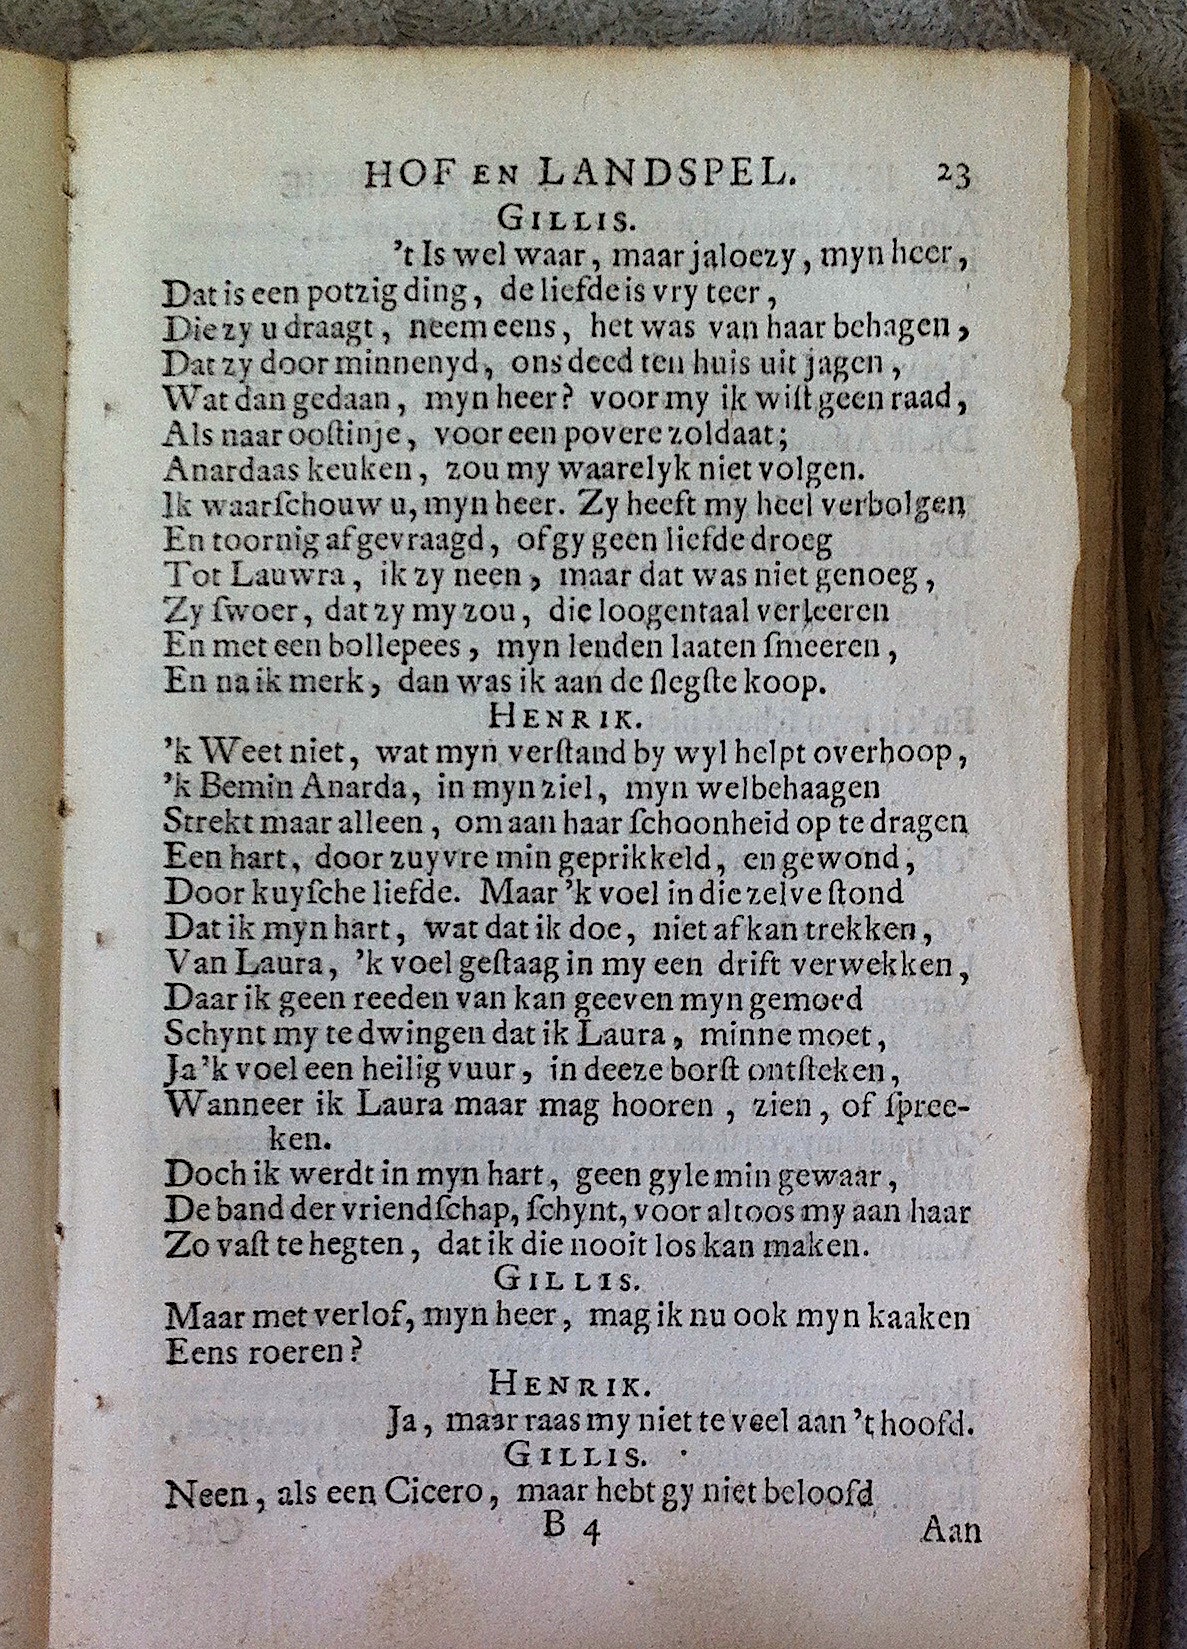 HOF EN LANDSPEL. 23
GILLIS.
't Is wel waar, maar jaloezy, myn heer,
Dat is een potzig ding, de liefde is vry teer,
Die zy u draagt, neem eens, het was van haar behagen,
Dat zy door minnenyd, ons deed ten huis uit jagen,
Wat dan gedaan, myn heer? voor my ik wiſt geen raad,
Als naar ooſtinje, voor een povere zoldaat;
Anardaas keuken, zou my waarelyk niet volgen.
Ik waarſchouw u, myn heer. Zy heeft my heel verbolgen
En toornig afgevraagd, of gy geen liefde droeg
Tot Lauwra, ik zy neen, maar dat was niet genoeg,
Zy ſwoer, dat zy my zou, die loogentaal verleeren
En met een bollepees, myn lenden laaten ſmeeren,
En na ik merk, dan was ik aan de ſlegſte koop.
HENRIK.
'k Weet niet, wat myn verſtand by wyl helpt overhoop,
'k Bemin Anarda, in myn ziel, myn welbehaagen
Strekt maar alleen, om aan haar ſchoonheid op te dragen
Een hart, door zuyvre min geprikkeld, en gewond,
Door kuyſche liefde. Maar 'k voel in die zelve ſtond
Dat ik myn hart, wat dat ik doe, niet af kan trekken,
Van Laura, 'k voel geſtaag in my een drift verwekken,
Daar ik geen reeden van kan geeven myn gemoed
Schynt my te dwingen dat ik Laura, minne moet,
Ja 'k voel een heilig vuur, in deeze borſt ontſteken,
Wanneer ik Laura maar mag hooren, zien, of ſpree-
ken.
Doch ik werdt in myn hart, geen gyle min gewaar,
De band der vriendſchap, ſchynt, voor altoos my aan haar
Zo vaſt te hegten, dat ik die nooit los kan maken.
GILLIS.
Maar met verlof, myn heer, mag ik nu ook myn kaaken
Eens roeren?
HENRIK.
Ja, maar raas my niet te veel aan 't hoofd.
GILLIS.
Neen, als een Cicero, maar hebt gy niet beloofd
B 4 Aan